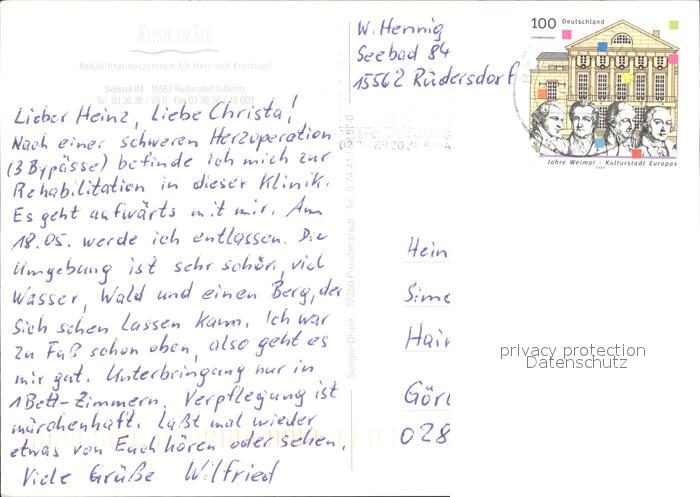 KLINIK AM SEE
Rehabilitationszentrum für Herz und Kreislauf
Seebad 84 15562 Rüdersdorf b. Berlin
Lieber Heinz, Liebe Christa!
Nach einer schweren Herzoperation
(3 Bypässe) befinde ich mich zur
Rehabilitation in dieser Klinik.
Es geht aufwärts mit mir. Am
18.05. werde ich entlassen. Die
Umgebung ist sehr schön, viel
Wasser, Wald und einen Berg, der
sich sehen lassen kann. Ich war
zu Fuß schon oben, also geht es
mir gut. Unterbringung nur in
1Bett-Zimmern. Verpflegung ist
märchenhaft. Laßt mal wieder
etwas von Euch hören oder sehen.
Viele Grüße Wilfried
Seeger-Druck 72250 Freudenstadt
W. Hennig
Seebad 84
15562 Rüdersdorf
100 Deutschland
Jahre Weimar - Kulturstadt Europas
Hein
Sime
Hain
Görl
028
privacy protection
Datenschutz